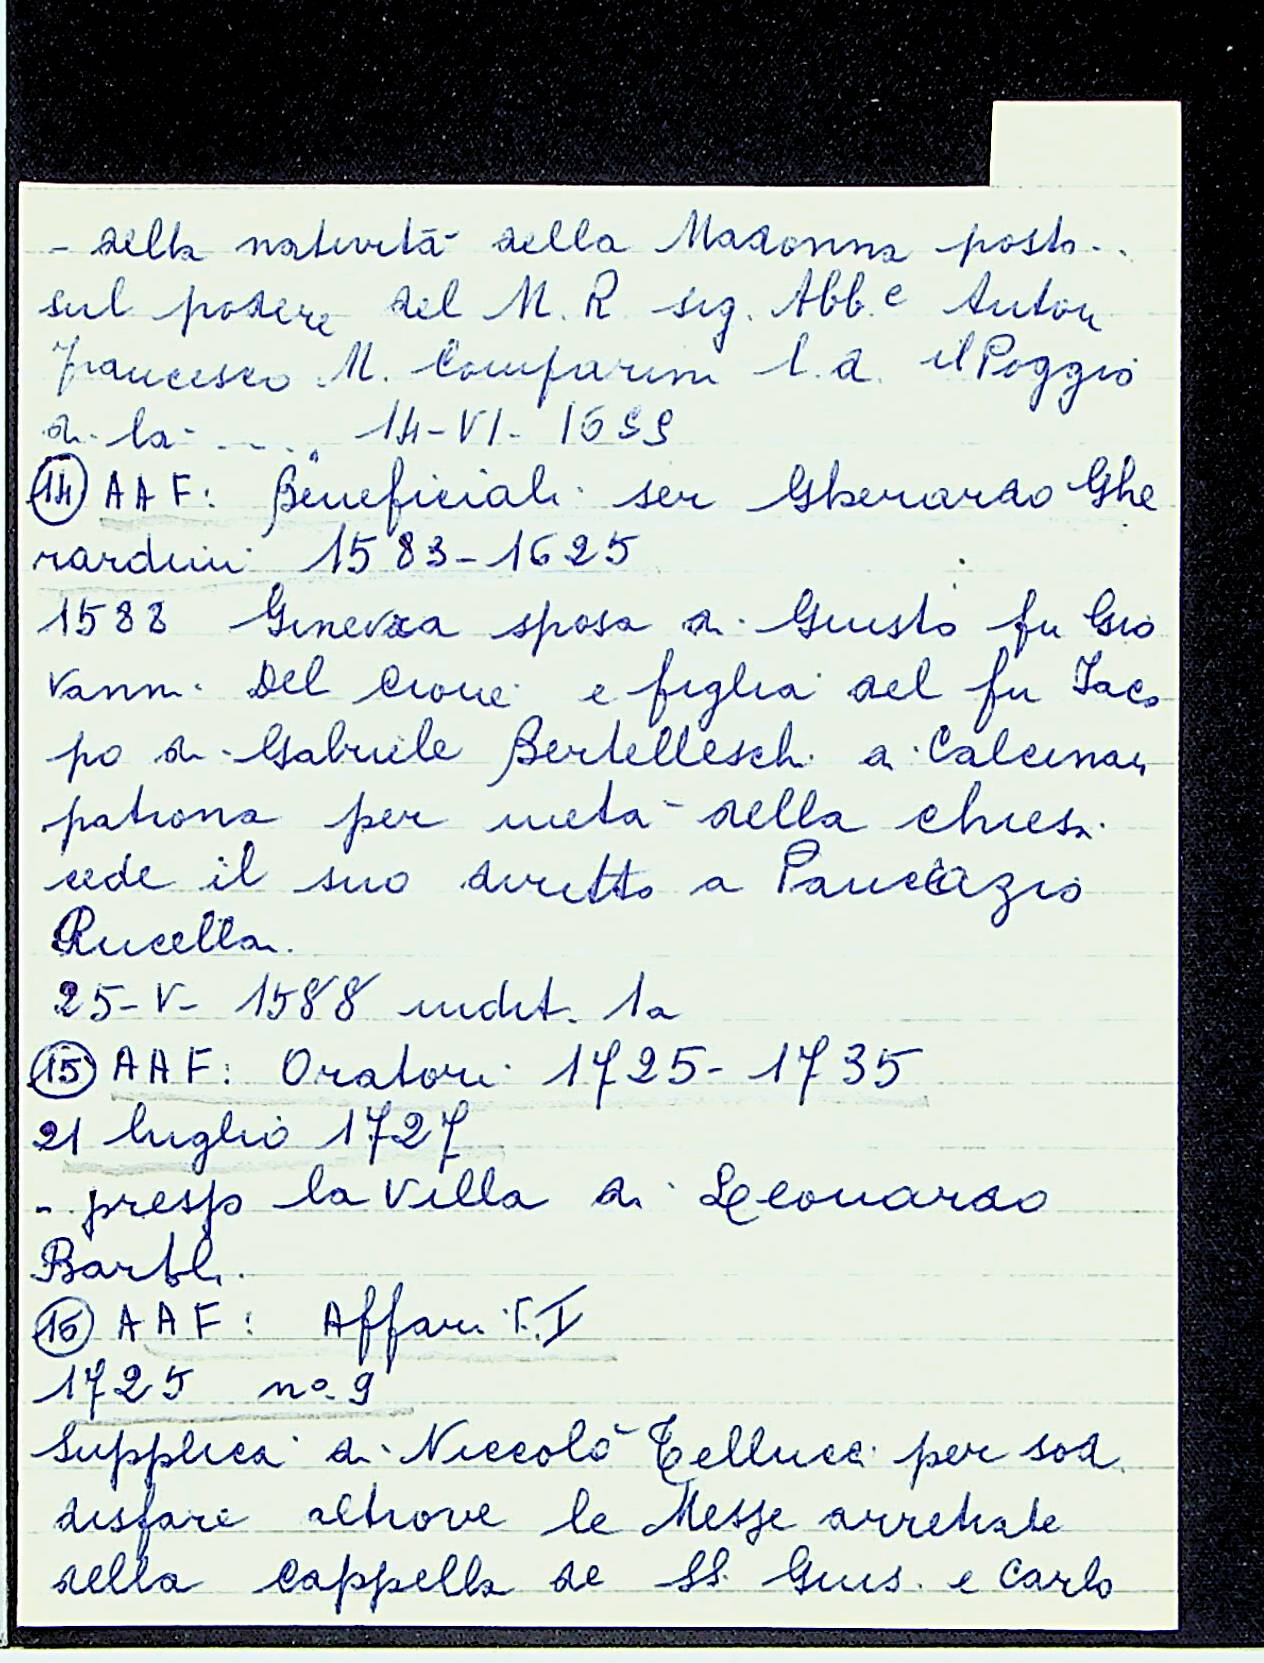 - della natività della Madonna posto..
sul podere del M. R. sig. Abb.e Anton
Francesco M. Comparini l.d. il Poggio
di là .... 14-VI-1699
(14) AAF: Beneficiali ser Gherardo Ghe
rardini 1583-1625
1588 Ginevra sposa di Giusto fu Gio
vanni Del Cione e figlia del fu Jaco
po di Gabriele Bertelleschi a Calcinai
patrona per metà della chiesa
cede il suo diritto a Pancrazio
Rucellai.
25-V-1588 indit. 1a
(15) AAF: Oratori 1725-1735
21 luglio 1727
- presso la Villa di Leonardo
(16) AAF: Affari F.I
1725 no. 9
Supplica di Niccolò Tellucci per sod
disfare altrove le Messe arretrate
della cappella de SS. Gius. e Carlo